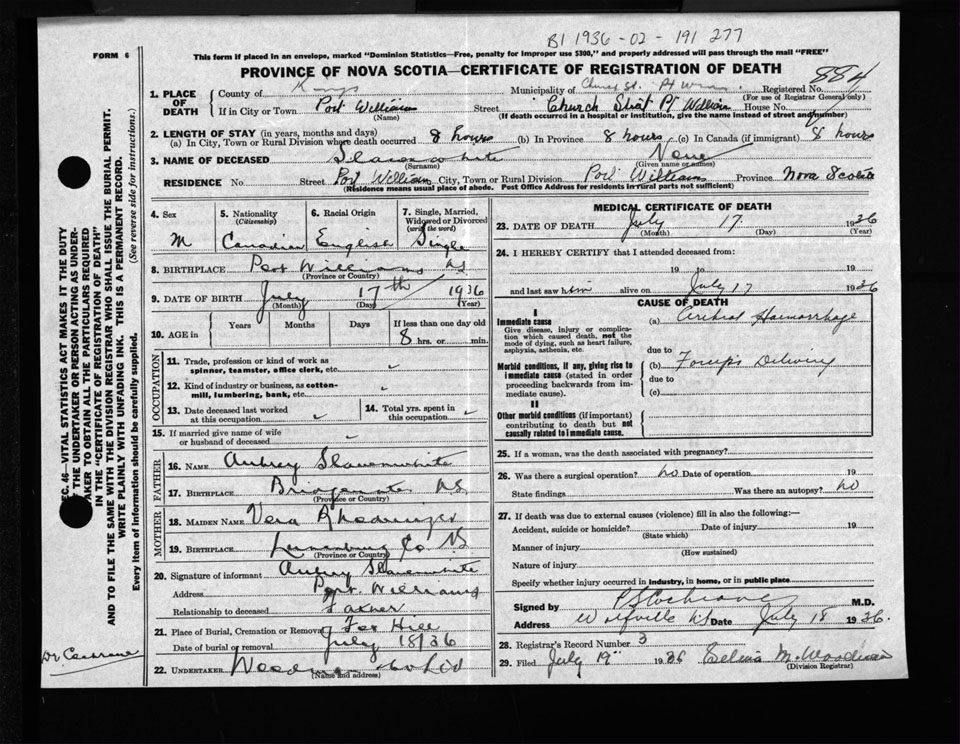 B1 1936-02-191277
FORM 6
This form if placed in an envelope, marked "Dominion Statistics—Free, penalty for improper use $300," and properly addressed will pass through the mail "FREE"
PROVINCE OF NOVA SCOTIA—CERTIFICATE OF REGISTRATION OF DEATH
884
1. PLACE OF DEATH
County of Kings
Municipality of Church St. Pt Wms.
Registered No.
(For use of Registrar General only)
If in City or Town Port William Street Church Street Pt William House No.
(Name)
(If death occurred in a hospital or institution, give the name instead of street and number)
2. LENGTH OF STAY (in years, months and days)
(a) In City, Town or Rural Division where death occurred 8 hours (b) In Province 8 hours (c) In Canada (if immigrant) 8 hours
3. NAME OF DECEASED Slauenwhite None
(Surname) (Given name or names)
RESIDENCE No. Street Port William City, Town or Rural Division Port Williams Province Nova Scotia
(Residence means usual place of abode. Post Office Address for residents in rural parts not sufficient)
4. Sex
M
5. Nationality
(Citizenship)
Canadian
6. Racial Origin
English
7. Single, Married, Widowed or Divorced
(write the word)
Single
8. BIRTHPLACE Port Williams NS
(Province or Country)
9. DATE OF BIRTH July 17th 1936
(Month) (Day) (Year)
10. AGE in
Years Months Days If less than one day old
8 hrs. or min.
OCCUPATION
11. Trade, profession or kind of work as spinner, teamster, office clerk, etc.
12. Kind of industry or business, as cotton-mill, lumbering, bank, etc.
13. Date deceased last worked at this occupation
14. Total yrs. spent in this occupation
15. If married give name of wife or husband of deceased
FATHER
16. NAME Aubrey Slauenwhite
17. BIRTHPLACE Bridgewater NS
(Province or Country)
MOTHER
18. MAIDEN NAME Vera
19. BIRTHPLACE Lunenburg Co NS
(Province or Country)
20. Signature of informant Aubrey Slauenwhite
Address Port Williams
Relationship to deceased Father
21. Place of Burial, Cremation or Removal Fox Hill
Date of burial or removal July 18/36
22. UNDERTAKER Woodman Co Ltd
(Name and address)
MEDICAL CERTIFICATE OF DEATH
23. DATE OF DEATH July 17 1936
(Month) (Day) (Year)
24. I HEREBY CERTIFY that I attended deceased from:
19 to 19
and last saw him alive on July 17 1936
CAUSE OF DEATH
I
Immediate cause
Give disease, injury or complication which caused death, not the mode of dying, such as heart failure, asphyxia, asthenia, etc.
(a) Cerebral Haemorrhage
due to
Morbid conditions, if any, giving rise to immediate cause (stated in order proceeding backwards from immediate cause).
(b) Forceps Delivery
due to
(c)
II
Other morbid conditions (if important) contributing to death but not causally related to immediate cause.
25. If a woman, was the death associated with pregnancy?
26. Was there a surgical operation? No Date of operation 19
State findings Was there an autopsy? No
27. If death was due to external causes (violence) fill in also the following:—
Accident, suicide or homicide? Date of injury 19
(State which)
Manner of injury
(How sustained)
Nature of injury
Specify whether injury occurred in industry, in home, or in public place
Signed by P S Cochrane M.D.
Address Wolfville NS Date July 18 1936.
28. Registrar's Record Number 3
29. Filed July 19" 1936 Selina M. Woodman
(Division Registrar)
SEC. 46—VITAL STATISTICS ACT MAKES IT THE DUTY
OF THE UNDERTAKER OR PERSON ACTING AS UNDER-
TAKER TO OBTAIN ALL THE PARTICULARS REQUIRED
IN THE "CERTIFICATE OF REGISTRATION OF DEATH"
AND TO FILE THE SAME WITH THE DIVISION REGISTRAR WHO SHALL ISSUE THE BURIAL PERMIT.
WRITE PLAINLY WITH UNFADING INK. THIS IS A PERMANENT RECORD.
Every item of information should be carefully supplied. (See reverse side for instructions.)
Dr Cochrane